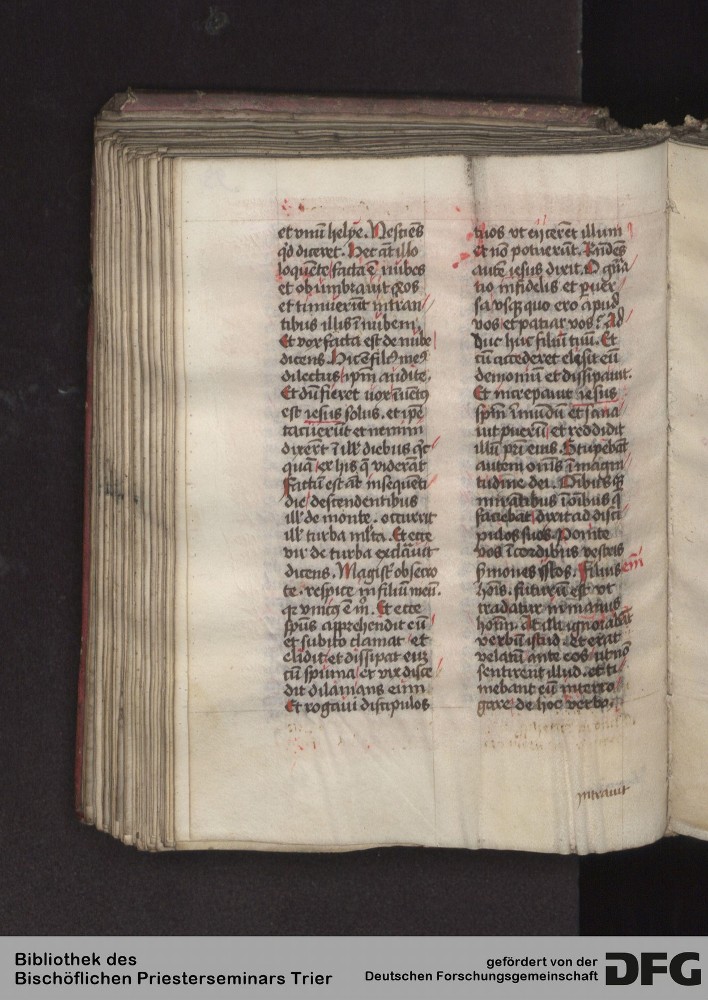 et vnū helye. Nesciēs
qd diceret. Hec āt illo
loquēte facta ē nubes
et obumbrauit eos
et timuerūt intran
tibus illis ī nubem.
Et vox facta est de nube
dicens. Hic ē filꝰ meꝰ
dilectus ipm audite.
Et dū fieret uox īuētꝰ
est iesus solus. et ipi
tacuerūt et nemini
dixerūt ī illꝭ diebus
ex his q viderāt
Factū est āt insequēti
die descendentibus
illꝭ de monte. occurrit
illꝭ turba mlta. Et ecce
vir de turba exclāuit
dicens. Magist obsecro
te. respice in filiū meū.
qꝛ vnicꝰ ē m. Et ecce
spūs apprehendit eū
et subito clamat et
elidit et dissipat euꝫ
cū spuma et vix disce
dit dilanians eum
Et rogaui discipulos
tuos vt eijcerēt illum
et nō potuerūt. Rndēs
autē iesus dixit. O gna
tio infidelis et puer
sa vsqꝫ quo ero apud
vos et patiar vos? Ad
duc huc filiū tuū. Et
cū accederet elisit eū
demoniū et dissipauit.
Et increpauit iesus
spm īmūdū et sana
uit puerū et reddidit
illū pri eius. Stupebāt
autem oms ī magni
tudine dei. Oibusqꝫ
mirātibus ī oibus q
faciebat dixit ad disci
pulos suos. Ponite
vos ī cordibus vestris
smones istos. Filius em̄
hois futurū est vt
tradatur in manus
hoīm. At illi ignorabāt
verbū istud. et erat
velatū ante eos ut nō
sentirent illud. et ti
mebant eū interro
gare de hoc verbo.
intrauit
Bibliothek des
Bischöflichen Priesterseminars Trier
gefördert von der
Deutschen Forschungsgemeinschaft
DFG